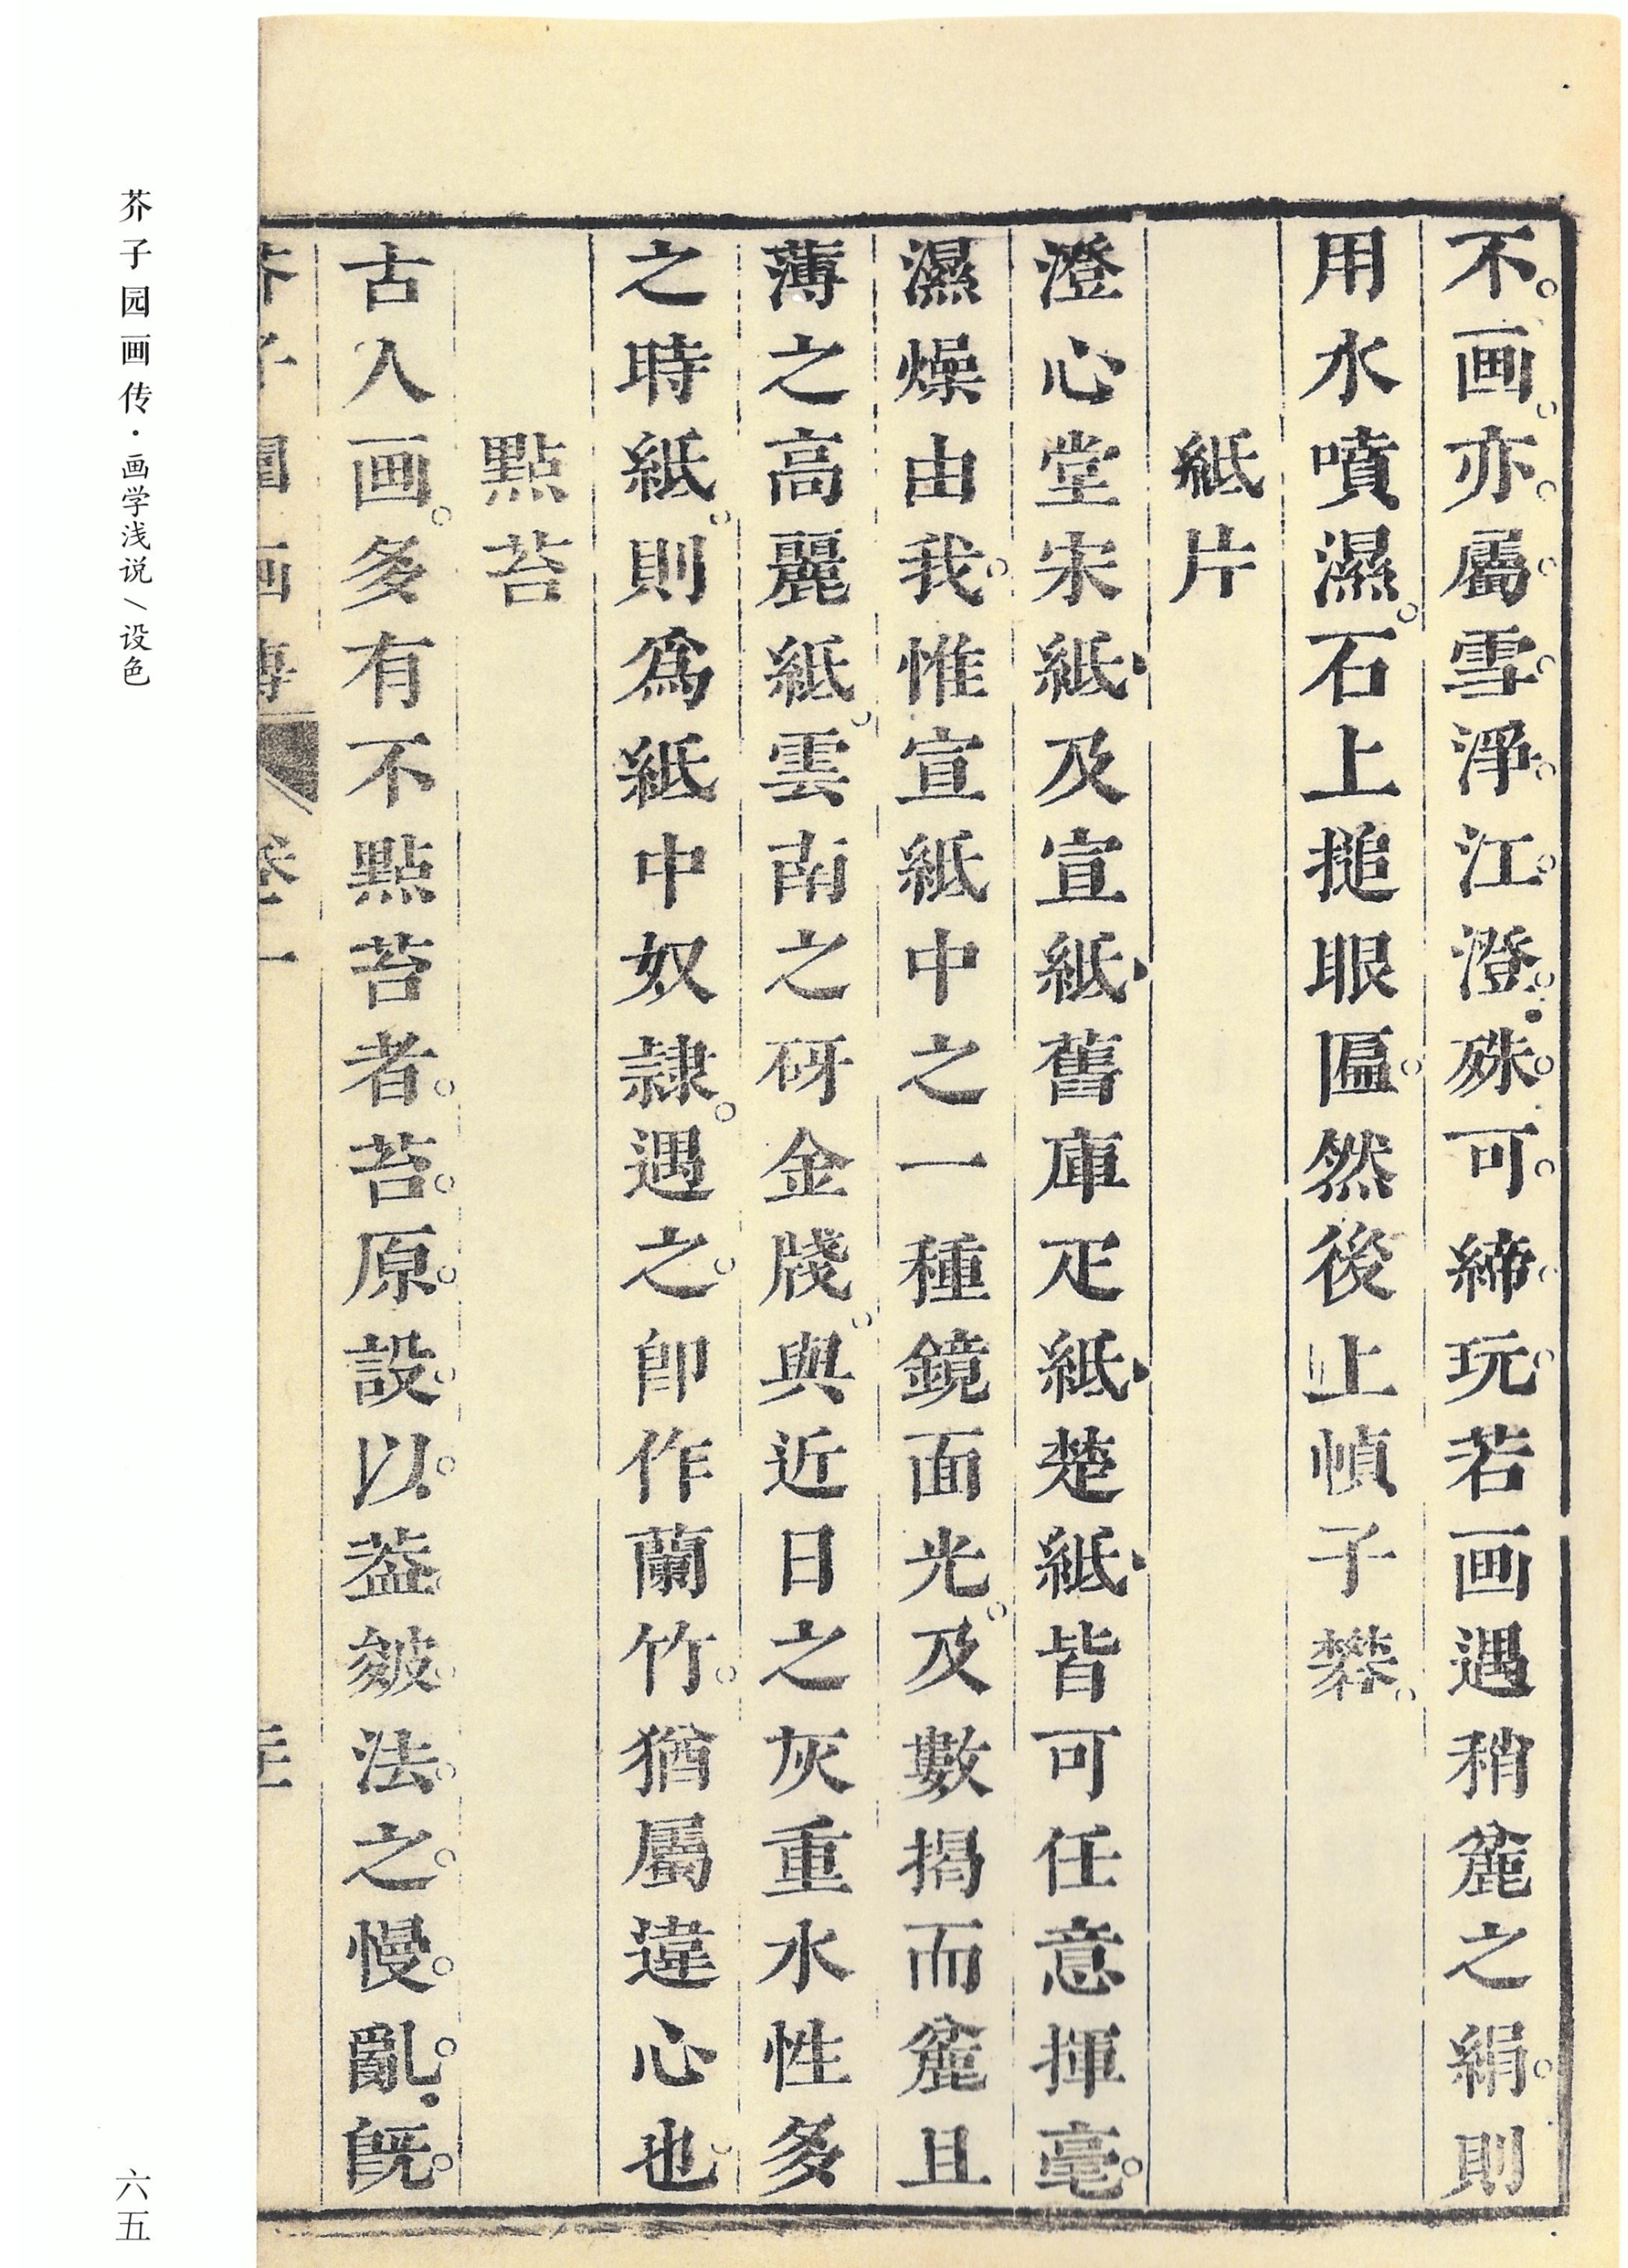 不画亦屬雪淨江澄殊可締玩若画遇稍麄之絹則
用水噴濕石上搥眼匾然後上幀子礬
紙片
澄心堂宋紙及宣紙舊庫疋紙楚紙皆可任意揮毫
濕燥由我惟宣紙中之一種鏡面光及數揭而麄且
薄之高麗紙雲南之砑金牋與近日之灰重水性多
之時紙則為紙中奴隷遇之即作蘭竹猶屬違心也
點苔
古人画多有不點苔者苔原設以葢皴法之慢亂旣
芥子園画傳 卷一
芥子园画传·画学浅说/设色
六五